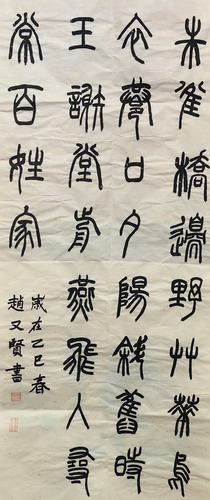 朱雀橋邊野艸華烏
衣巷口夕陽斜舊時
王謝堂前燕飛入尋
常百姓家
歲在乙巳春
趙又賢書